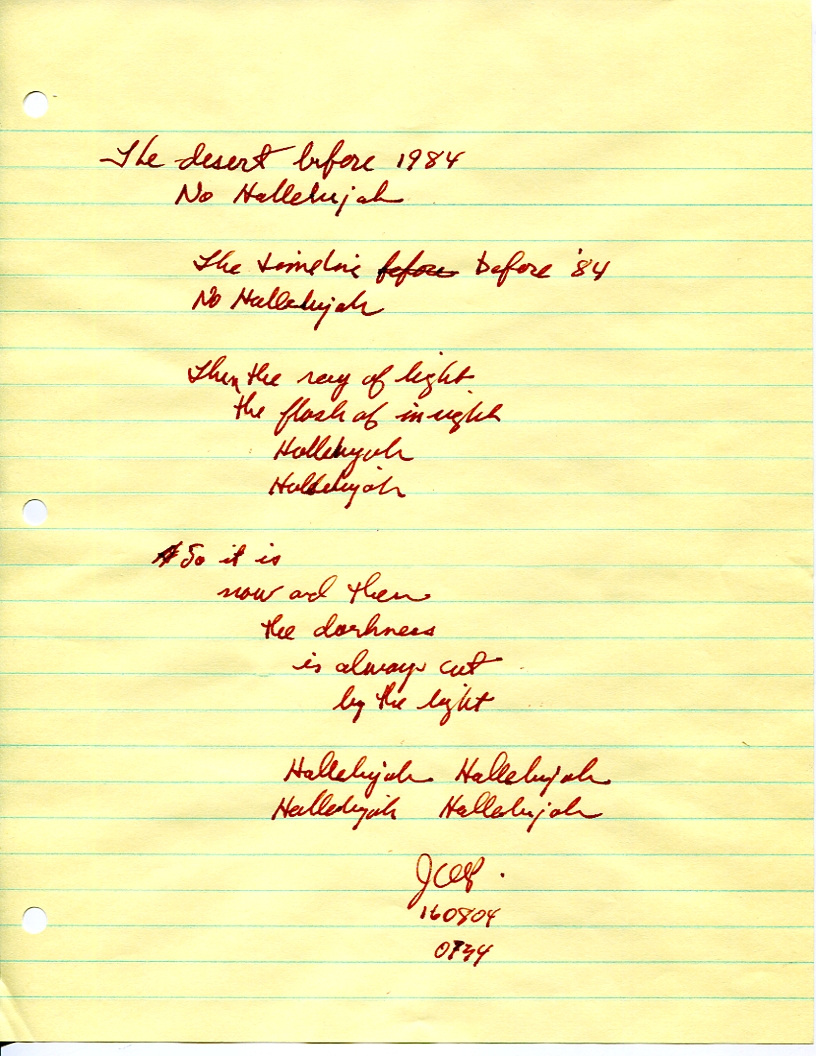 The desert before 1984
No Hallelujah
The timeline before before '84
No Hallelujah
Then the ray of light
the flash of insight
Hallelujah
Hallelujah
So it is
now and then
the darkness
is always cut
by the light
Hallelujah Hallelujah
Hallelujah Hallelujah
160804